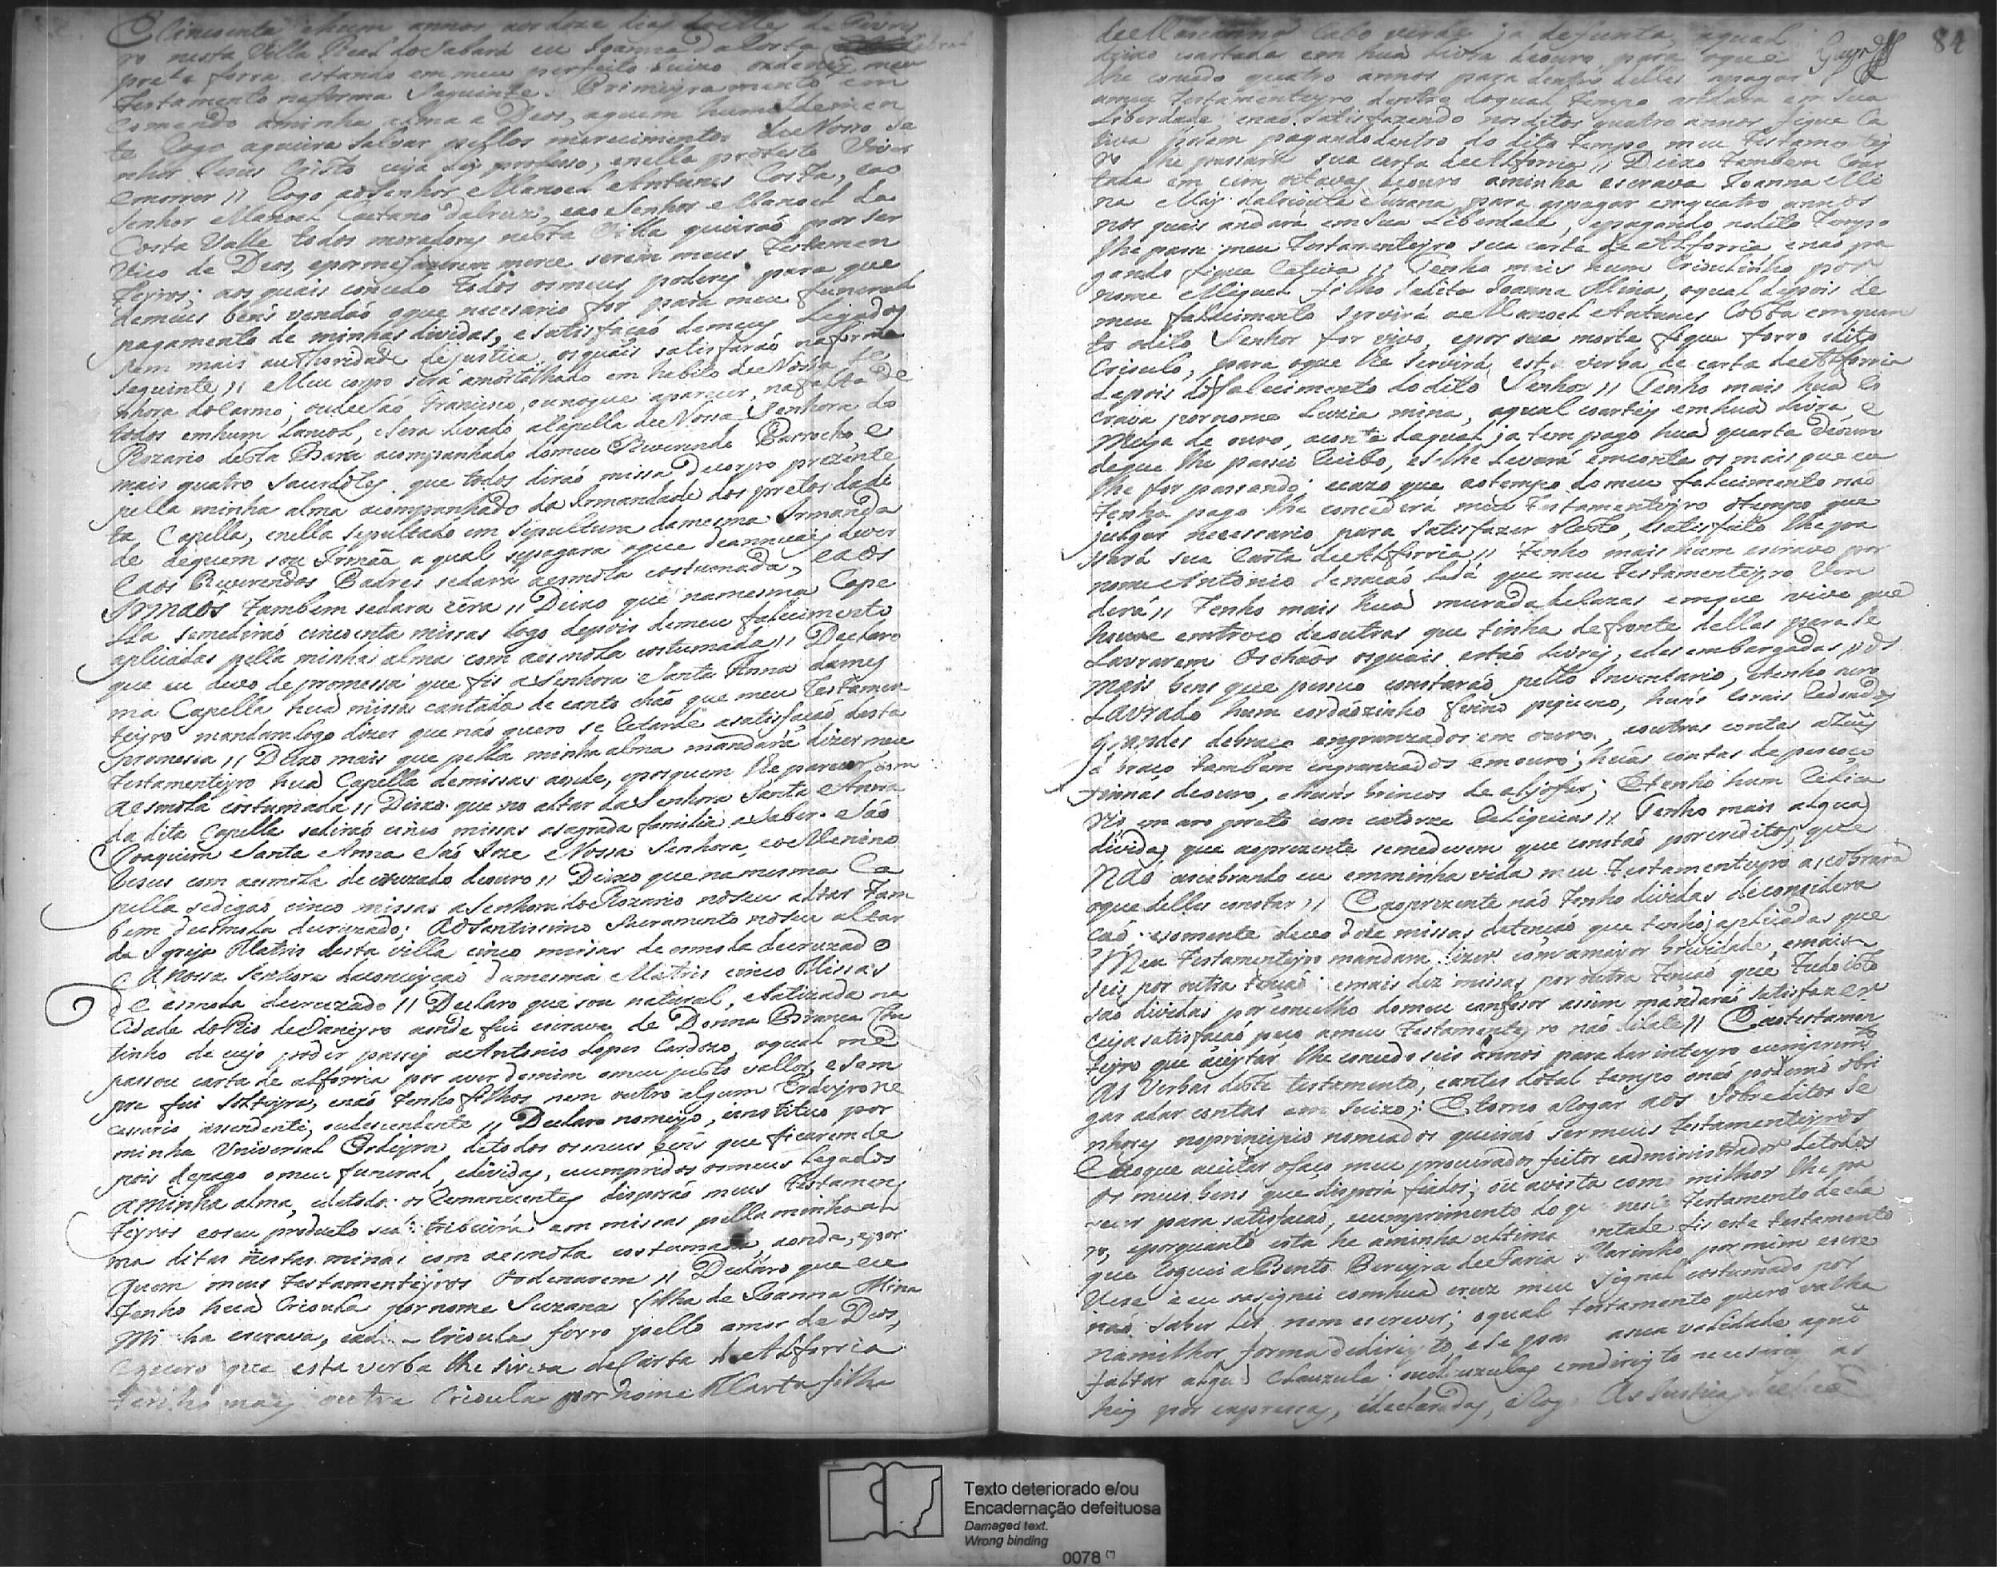 Cincoenta ehum annos aos doze dias do Mes de Feverey
ro nesta Villa Real do Sabará eu Joanna da Costa
preta forra estando em meu perfeito Juizo ordeney meu
testamento na forma Seguinte. Primeyramente em
comendo aminha alma a Deos, aquem humildemen
te Rogo aqueira Salvar pellos merecimentos de Nosso Se
nhor Jesus Cristo cuja Ley professo, enella protesto Viver
emorrer // Rogo ao Senhor Manoel Antunes Costa, eao
Senhor Manoel Caetano, eao Senhor Manoel da
Costa Valle todos moradores nesta Villa queiraõ por ser
viço de Deos, epor me fazerem merce serem meus testamen
teyros; aos quais concedo todos os meus poderes para que
demeus bens vendaõ oque necesario for para meu funeral
pagamento de minhas dividas, e satisfaçaõ de meus Legados
sem mais authoridade de justiça, os quais satisfaraõ na forma
seguinte // Meu corpo será amortalhado em habito de Nossa Se
nhora do Carmo; ou de Saõ Francisco, ou no que aparecer, na falta de
todos em hum Lançol, e sera Levado a Capella de Nossa Senhora do
Rozario desta Barra acompanhado do meu Reverendo Parrocho, e
mais quatro Sacerdotes que todos diraõ missa de corpo prezente
pella minha alma acompanhado da Irmandade dos pretos da di
ta Capella, enella sepultado em sepultura da mesma Irmanda
de de quem sou Irmãa, a qual sepagara oque de annuais dever
eaos Reverendos Padres sedará aesmola costumada, eaos
Irmaõs tambem sedara cera // Deixo que na mesma Cape
lla semediraõ cincoenta missas logo depois demeu falecimento
aplicadas pella minha alma com aesmola costumada // Declaro
que eu devo de promessa que fis a Senhora Santa Anna da mes
ma Capella huã missa cantada de canto chaõ que meu testamen
teyro mandara logo dizer que naõ quero se Retarde a satisfaçaõ desta
promesa // Deixo mais que pella minha alma mandará dizer meu
testamenteyro huã Capella de missas aonde, eporquem lhe parecer com
aesmola costumada // Deixo que no altar da Senhora Santa Anna
da dita Capella sediraõ cinco missas a sagrada familia a Saber Saõ
Joaquim Santa Anna Saõ Joze Nossa Senhora, eo Menino
Jesus com aesmola de cruzado de ouro // Deixo que na mesma Ca
pella sedigaõ cinco missas a Senhora do Rozario no seu altar tam
bem de esmola de cruzado; Ao Santissimo Sacramento no seu altar
da Igreja Matris desta villa cinco missas de esmola de cruzado
e a Nossa Senhora da Conceyçaõ da mesma Matris cinco Missas
de esmola de cruzado // Declaro que sou natural, e batizada na
Cidade do Rio de Janeyro aonde fui escrava de Donna Branca Cou
tinho de cujo poder passey a Antonio Lopes Cardozo, oqual me
passou carta de alforria por aver de mim o meu justo vallor, e sem
pre fui Solteyra, enaõ tenho filhos nem outro algum Erdeyro ne
cessario assendente, ou desendente // Declaro nomeyo, einstituo por
minha Universal Erdeyra de todos os meus bens que ficarem de
pois de pago o meu funeral, edividas, ecumpridos os meus Legados
aminha alma, ede todos os Remanecentes disporaõ meus testamen
teyros eo seu producto sedestribuirá em missas pella minha al
ma ditas nestas minas com aesmola costumada, aonde, epor
quem meus testamenteyros ordenarem // Declaro que eu
tenho huã Crioula por nome Suzana filha de Joanna Mina
Minha escrava, eadita crioula forro pello amor de Deos,
equero que esta verba lhe sirva de Carta de Alforria
tenho mais outra Crioula por nome Marta filha
84
de Marianna Cabo verde ja defunta, aqual
deixo coartada em huã Livra de ouro, para oque
lhe concedo quatro annos para dentro delles apagar
ameu testamenteyro, dentro doqual tempo andara em sua
Liberdade enaõ satisfazendo nos ditos quatro annos fique ca
tiva porem pagando dentro do dito tempo meu testamentey
ro lhe passará sua carta de Alforria // Deixo tambem coar
tada em cem oitavas de ouro aminha escrava Joanna Mi
na May da Suzana, para apagar em quatro annos
nos quais andará em sua Liberdade, epagando no dito tempo
lhe passe meu testamenteyro sua carta de Alforria enaõ pa
gando fique Cativa // Tenho mais hum Crioulinho por
nome Miguel filho da dita Joanna Mina, oqual depois de
meu falecimento servirá a Manoel Antunes Costa em quan
to odito Senhor for vivo, epor sua morte fique forro o dito
Crioulo, para oque lhe servirá esta verba de carta de Alforria
depois do falecimento do dito Senhor // Tenho mais huã es
crava por nome Luzia mina, aqual coartey em huã Livra, e
Meya de ouro, aconta daqual ja tem pago huã quarta de ouro
deque lhe passei Recibo, eselhe Levará em conta os mais que eu
lhe for passando; ecazo que ao tempo do meu falecimento naõ
tenha pago lhe concederá meu Testamenteyro otempo que
julgar necessario para satisfazer oResto, esatisfeito lhe pa
ssará sua Carta de Alforria // Tenho mais hum escravo por
nome Antonio de naçaõ Ladá que meu testamenteyro Ven
derá // Tenho mais huã morada de Cazas em que vivo que
houve em troco de outras que tinha defronte dellas para se
Lavrarem os chaõs osquais estaõ Livres, e desembargadas // Os
mais bens que possuo constaraõ pello Inventario, etenho ouro
Lavrado hum cordaõzinho fino piqueno, huns corais Redondos
grandes debraço engranzados em ouro, eoutras contas azuis
de braço tambem engranzadas em ouro; huas contas de pescoço
finas de ouro, ehuns brincos de aljofar; Etenho hum Relica
rio em aro preto com catorze Reliquias // Tenho mais alguã
dividas que aoprezente semedevem que constaõ por creditos, que
Naõ ascobrando eu emminha vida meu testamenteyro ascobrará
oque dellas constar // E aoprezente naõ tenho dividas de considera
caõ, esomente devo doze missas detençaõ que tenho aplicadas que
Meu testamenteyro mandara dizer com amayor brevidade, emais
seis por outra tençaõ, emais dez missas por outra tençaõ que tudo isto
saõ dividas por conselho do meu confesor assim mandará satisfazer
cuja satisfaçaõ peço ameu testamenteyro naõ dilate // E aotestamen
teyro que aceytar lhe concedo seis annos para dar inteyro cumprimto
As Verbas deste testamento, eantes dotal tempo onaõ poderaõ obri
gar adar contas em Juizo; E torno aRogar aos Sobreditos Se
nhores noprincipio nomeados queiraõ ser meus testamenteyros
Eaoque aceitar ofaço meu procurador feitor eadministrador de todos
os meus bens que disporá fiados; ou avista como milhor lhe pa
recer para satisfaçaõ, ecumprimento doque neste testamento decla
ro, eporquanto esta he aminha ultima vontade fis este testamento
que Roguei a Bento Pereyra de Faria Marinho, por mim escre
vese e eu oasigney comhuã cruz meu signal costumado por
naõ saber Ler nem escrever; oqual testamento quero valha
namelhor forma dedireyto, ese para asua validade aqui
faltar alguã Clauzula ou clauzulas emdireyto necesarias as
hey por expressas, edeclaradas, eRogo As Justiças
Texto deteriorado e/ou
Encadernação defeituosa
Damaged text.
Wrong binding
0078 (*)